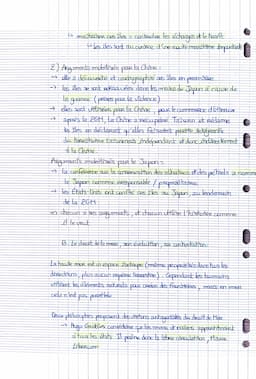 ↳ mainmise des îles = contrôler les échanges et le trafic
↳ les îles sont au centre d'une route maritime importante
2) Arguments mobilisés par la Chine :
→ elle a découverte et cartographié ces îles en première
→ les îles se sont retrouvées dans les mains du Japon à cause de
la guerre (prises par la violence)
→ elles sont utilisées par la Chine, pour le commerce d'ailleurs
→ après la 2GM, la Chine a récupérée Taiwan et réclame
les îles en déclarant qu'elles faisaient partie intégrante
du territoire taiwanais, indépendant et donc
à la Chine.
Arguments mobilisés par le Japon :
→ la conférence sur la conservation des albatros et des pétrels a nommé
le Japon comme responsable / propriétaire
→ les États-Unis ont confié ces îles au Japon, au lendemain
de la 2GM
⇒ chacun a ses arguments, et chacun utilise l'histoire comme
il le veut
B. Le droit de la mer, son évolution, sa contestation.
La haute mer est un espace (même propriété dans tous les
directions, plus aucun repère terrestre). Cependant les humains
utilisent les éléments naturels pour créer des frontières, mais en mer
cela n'est pas possible.
Deux philosophes proposent des visions antagonistes du droit de Mer
→ Hugo Grotius considère que les mers et océans appartiennent
à tous les états. Il parle dans le libre circulation, Mare
Liberum